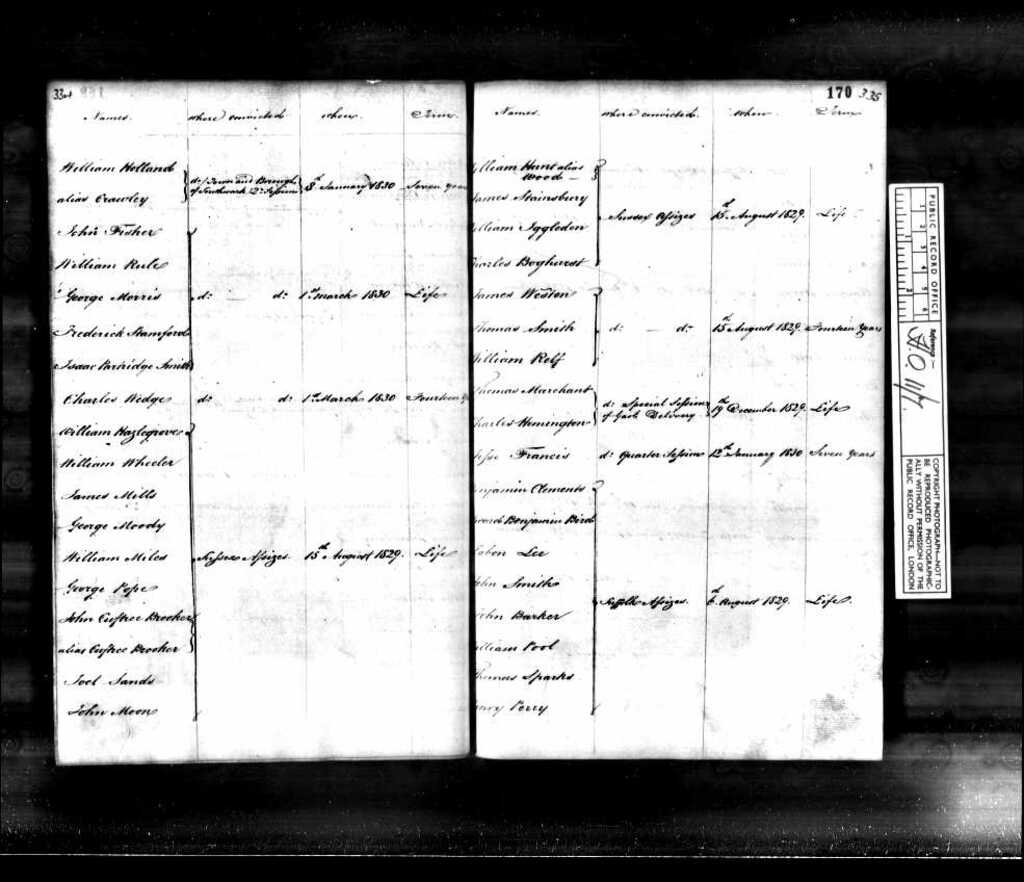 334
Names. where convicted. when. Term.
William Holland
alias Crawley
do/Town and Borough
of Southwark Qr. Session 8th January 1830 Seven years
John Fisher
William Rule
George Morris do — do 1st March 1830 Life
Frederick Stamford
Isaac Partridge Smith
Charles Wedge do do 1st March 1830 Fourteen
William Hazlegrove
William Wheeler
James Mills
George Moody
William Miles Sussex Assizes 15th August 1829. Life
George Pope
John Cuftree Brooker
alias Cuftree Brooker
Joel Sands
John Moon
170 335
Names. where convicted. when. Term
William Hunt alias
Wood
James Stainsbury
Sussex Assizes 15th August 1829. Life
William Iggleden
Charles Boghurst
James Weston
Thomas Smith do — do 15th August 1829. Fourteen years
William Relf
Thomas Marchant
do Special Session
of Gaol Delivery 19th December 1829. Life
Charles Hemington
Francis do Quarter Session 12th January 1830 Seven years
Benjamin Clements
Edward Benjamin Bird
Lee
John Smith
Suffolk Assizes. 6th August 1829. Life.
John Barker
William Pool
Thomas Sparks
Perry
PUBLIC RECORD OFFICE
1 2 3 4 5 6
1 2
Reference:-
H.O. 11/7
COPYRIGHT PHOTOGRAPH—NOT TO
BE REPRODUCED PHOTOGRAPHIC-
ALLY WITHOUT PERMISSION OF THE
PUBLIC RECORD OFFICE, LONDON